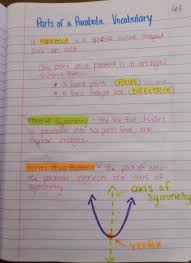 61
Parts of a Parabola Vocabulary
A PARABOLA is a special curve, shaped
like an arch.
Any point on a parabola is at an equal
distance from:
• a fixed point (FOCUS) and
• a fixed straight line (DIRECTRIX)
Axis of Symmetry - the line that divides
a parabola into two parts that are
mirror images.
Vertex of a Parabola - the point at which
the parabola intersects the axis of
symmetry.
axis of
symmetry
vertex